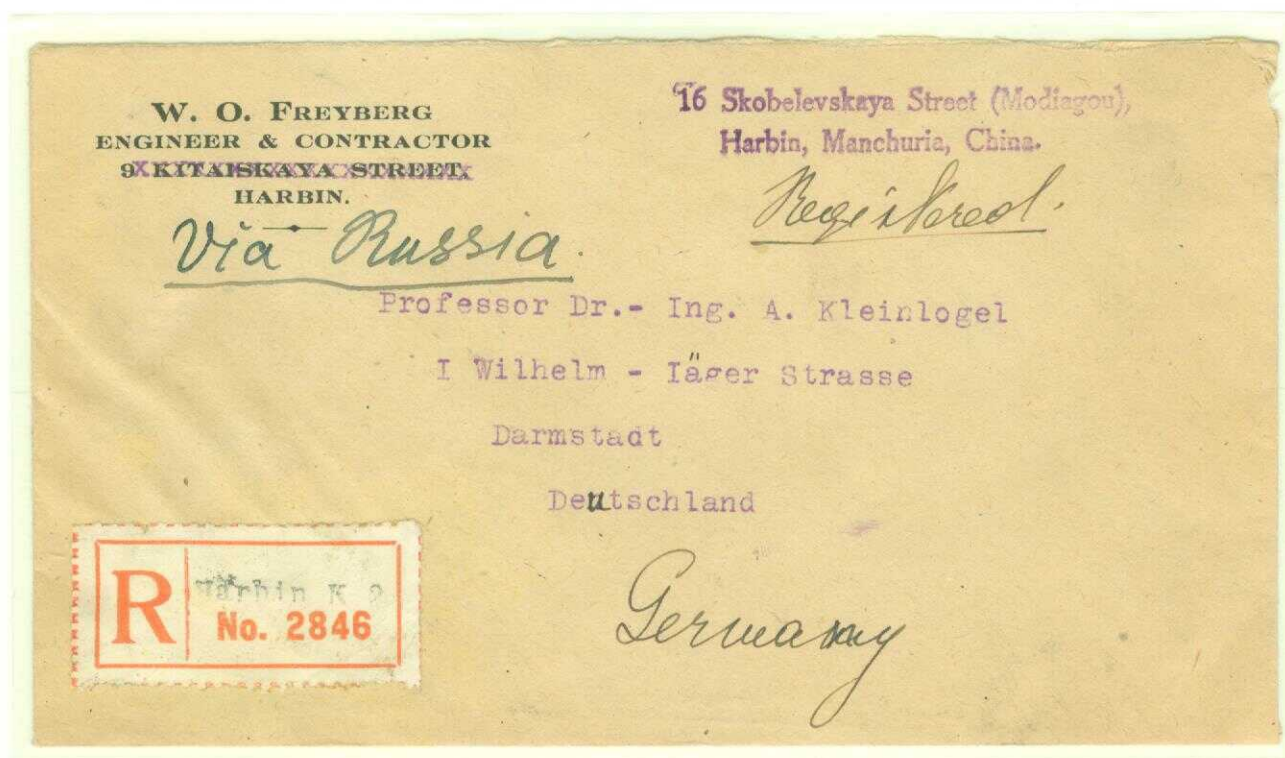 W. O. FREYBERG
ENGINEER & CONTRACTOR
9 KITAISKAYA STREET.
HARBIN.
16 Skobelevskaya Street (Modiagou),
Harbin, Manchuria, China.
Registered.
Via Russia.
Professor Dr.- Ing. A. Kleinlogel
I Wilhelm - Iäger Strasse
Darmstadt
Deutschland
R
Harbin K 2
No. 2846
Germany